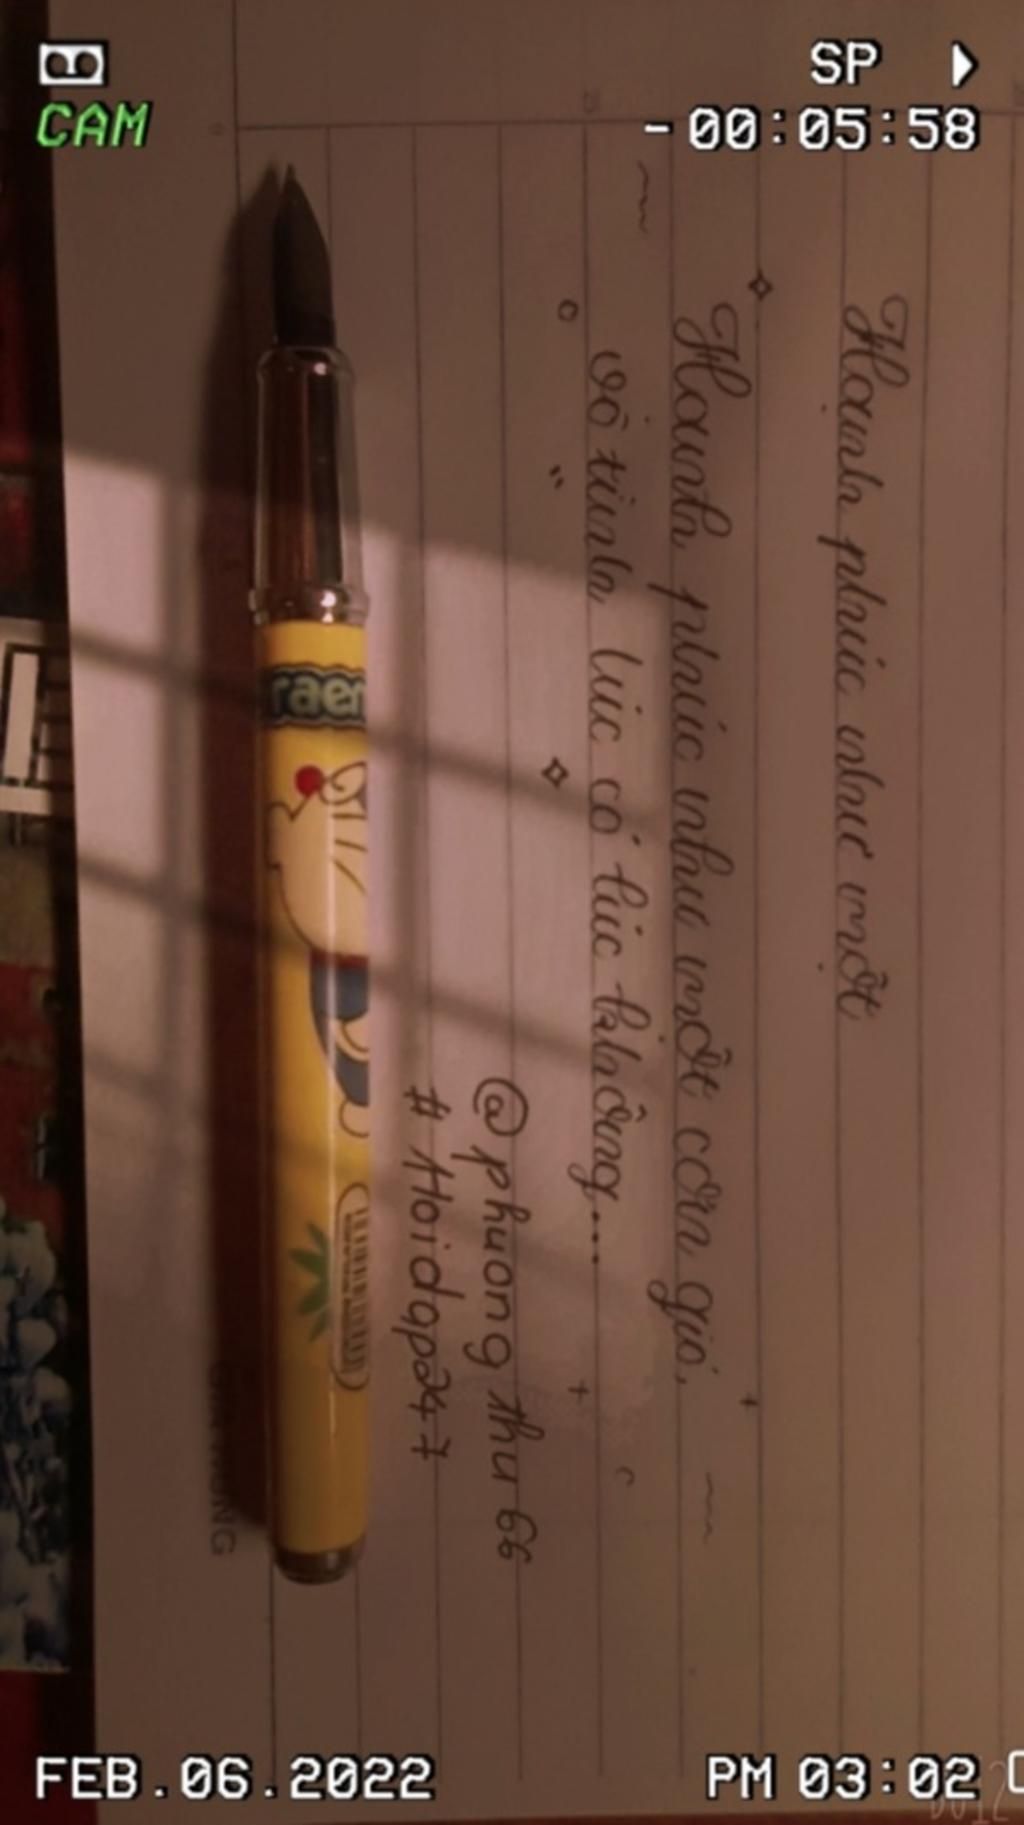 SP
CAM
-00:05:58
Hạnh phúc như một
Hạnh phúc như một cơn gió,
vô tình lúc có lúc không....
@phuongthu66
#Hoidap247
raem
FEB.06.2022
PM 03:02